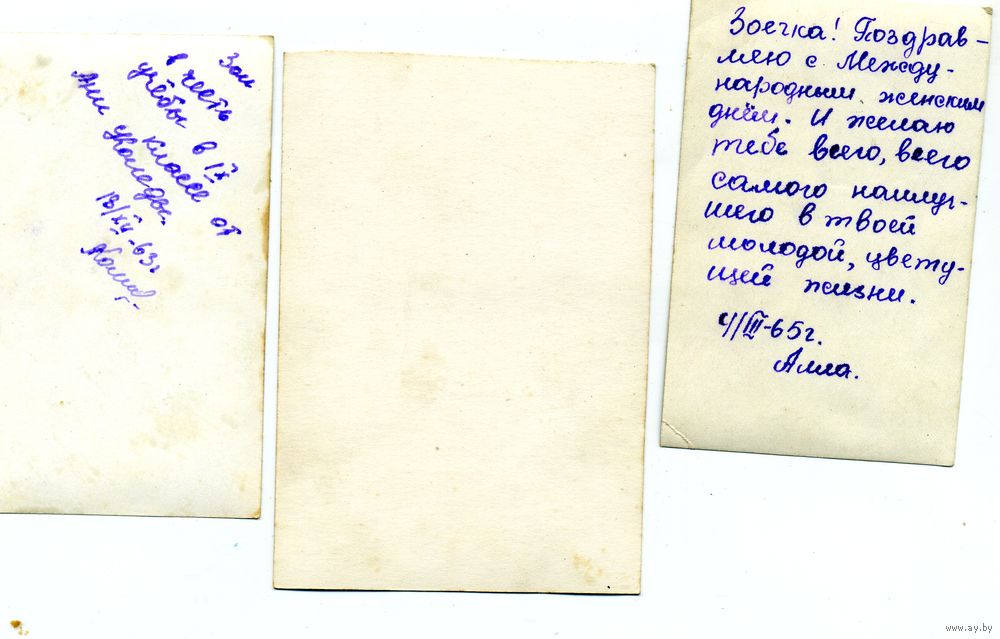 Зои
в честь
учёбы
в IX
классе от
Ани
13/XII-63г
Зоечка! Поздрав-
ляю с Между-
народным женским
днём. И желаю
тебе всего, всего
самого наилуч-
шего в твоей
молодой, цвету-
щей жизни.
4/III-65г.
Алла.
www.ay.by